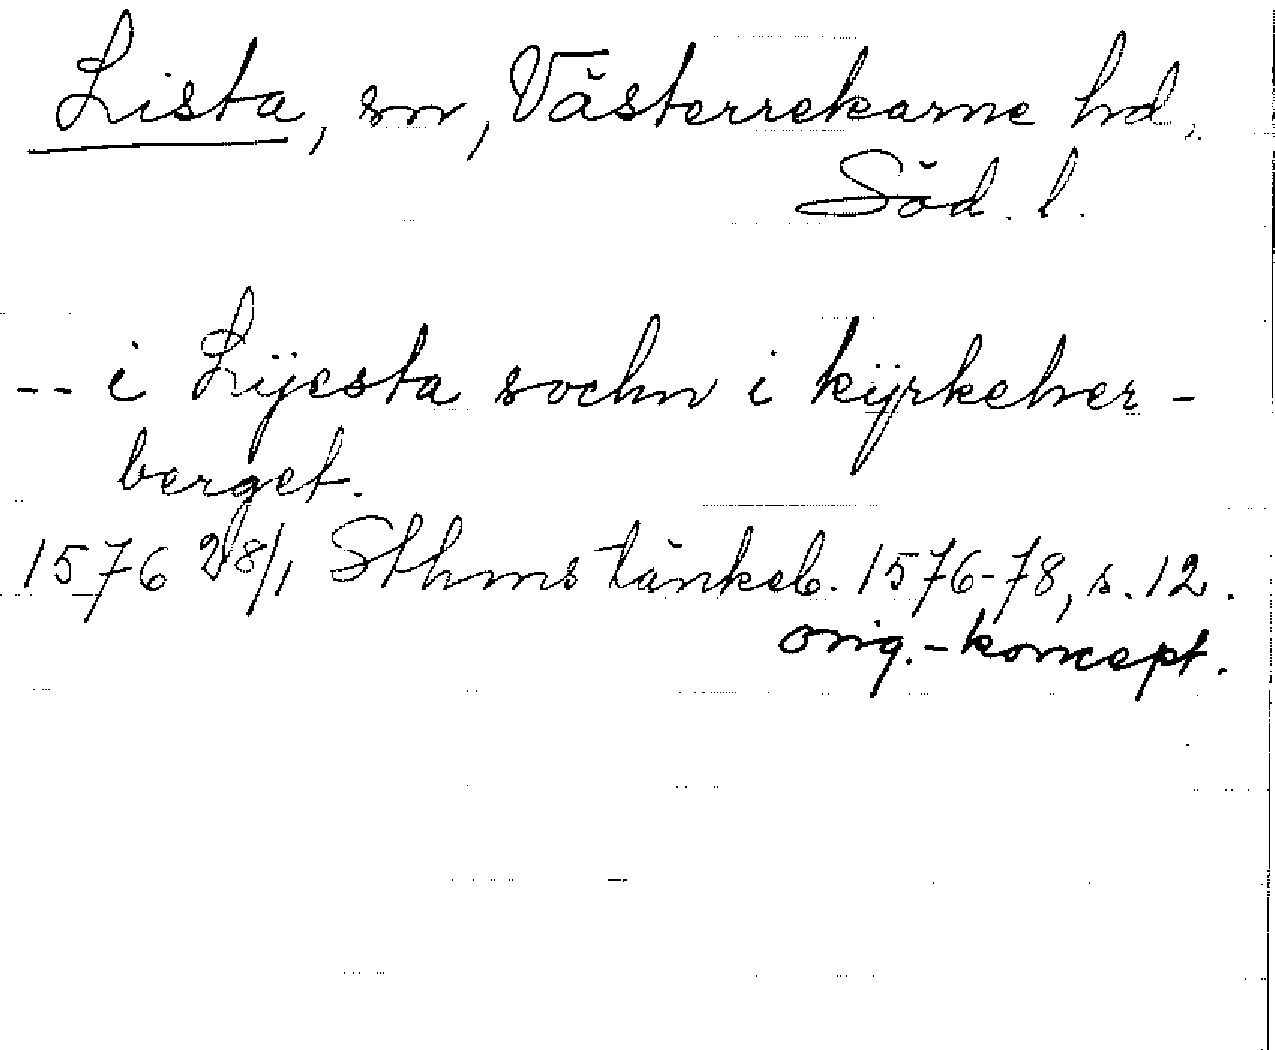 Lista, sn, Västerrekarne hd.
Söd. l.
-- i Lijesta sochn i kÿrkeher-
berget.
1576 28/1 Sthms tänkeb. 1576-78, s. 12.
orig.-koncept.